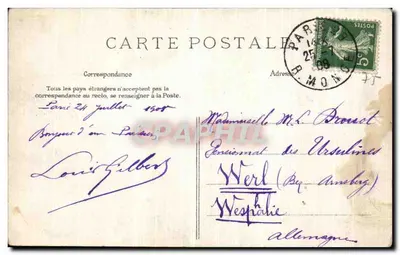 CARTE POSTALE
Correspondance
Adresse
Tous les pays étrangers n'acceptent pas la
correspondance au recto, se renseigner à la Poste.
Paris 24 Juillet 1908
Bonjour d'un
Louis Gilbert
Mademoiselle M. L.
Pensionnat des Ursulines
Werl (By. Arnsberg)
Westphalie
Allemagne
PARIS
25
R. MONGE
POSTES
5
75
CPAPHIL